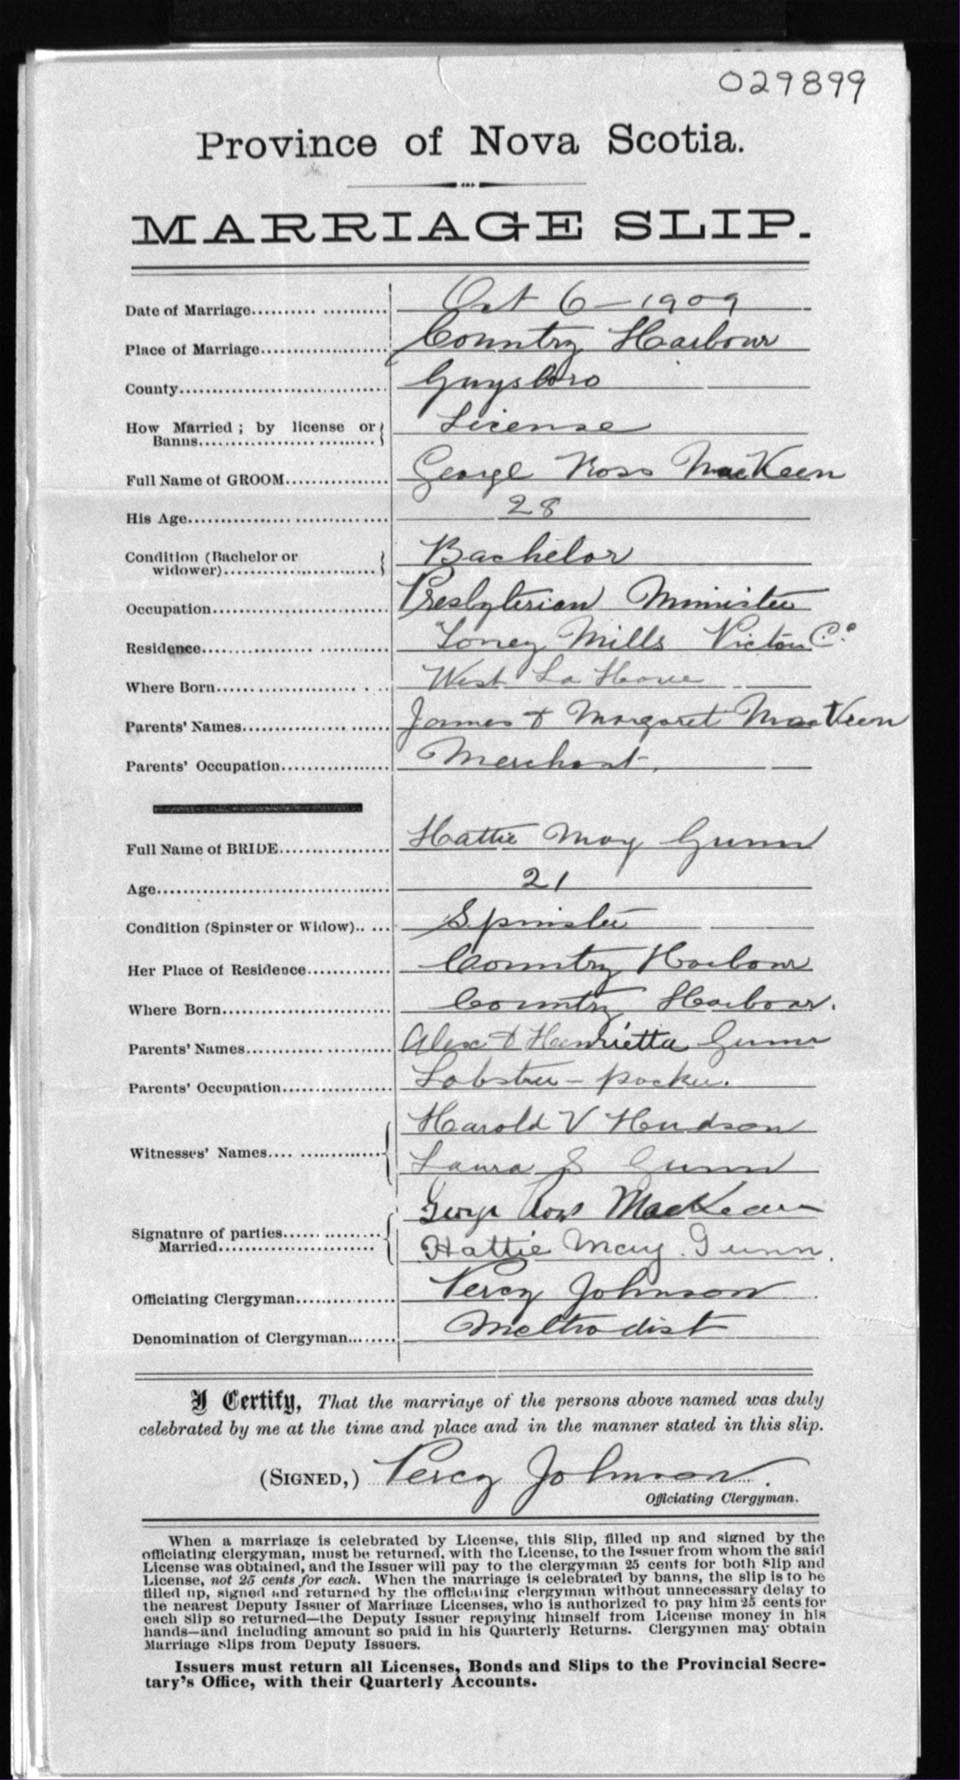 029899
Province of Nova Scotia.
MARRIAGE SLIP.
Date of Marriage.......... .......... Oct 6 - 1909
Place of Marriage.................... Country Harbour
County................................ Guysboro
How Married ; by license or
Banns.................... License
Full Name of GROOM................ George Ross MacKeen
His Age................ .............. 28
Condition (Bachelor or
widower)....................... Bachelor
Occupation........................... Presbyterian Minister
Residence................. ........... Toney Mills Pictou Co
Where Born................. . ... West La Have
Parents' Names.............. ...... James & Margaret MacKeen
Parents' Occupation................ Merchant.
Full Name of BRIDE................ Hattie May Gunn
Age.................................. 21
Condition (Spinster or Widow).. ... Spinster
Her Place of Residence............ Country Harbour
Where Born......................... Country Harbour.
Parents' Names............. ....... Alex & Henrietta Gunn
Parents' Occupation................ Lobster - packer.
Witnesses' Names.... ............ Harold V Hudson
Laura S Gunn
Signature of parties.................. George Ross MacKeen
Married....................... Hattie May Gunn.
Officiating Clergyman............... Percy Johnson
Denomination of Clergyman....... Methodist
I Certify, That the marriage of the persons above named was duly
celebrated by me at the time and place and in the manner stated in this slip.
(SIGNED,) Percy Johnson.
Officiating Clergyman.
When a marriage is celebrated by License, this Slip, filled up and signed by the
officiating clergyman, must be returned, with the License, to the Issuer from whom the said
License was obtained, and the Issuer will pay to the clergyman 25 cents for both Slip and
License, not 25 cents for each. When the marriage is celebrated by banns, the slip is to be
filled up, signed and returned by the officiating clergyman without unnecessary delay to
the nearest Deputy Issuer of Marriage Licenses, who is authorized to pay him 25 cents for
each Slip so returned—the Deputy Issuer repaying himself from License money in his
hands—and including amount so paid in his Quarterly Returns. Clergymen may obtain
Marriage Slips from Deputy Issuers.
Issuers must return all Licenses, Bonds and Slips to the Provincial Secre-
tary's Office, with their Quarterly Accounts.